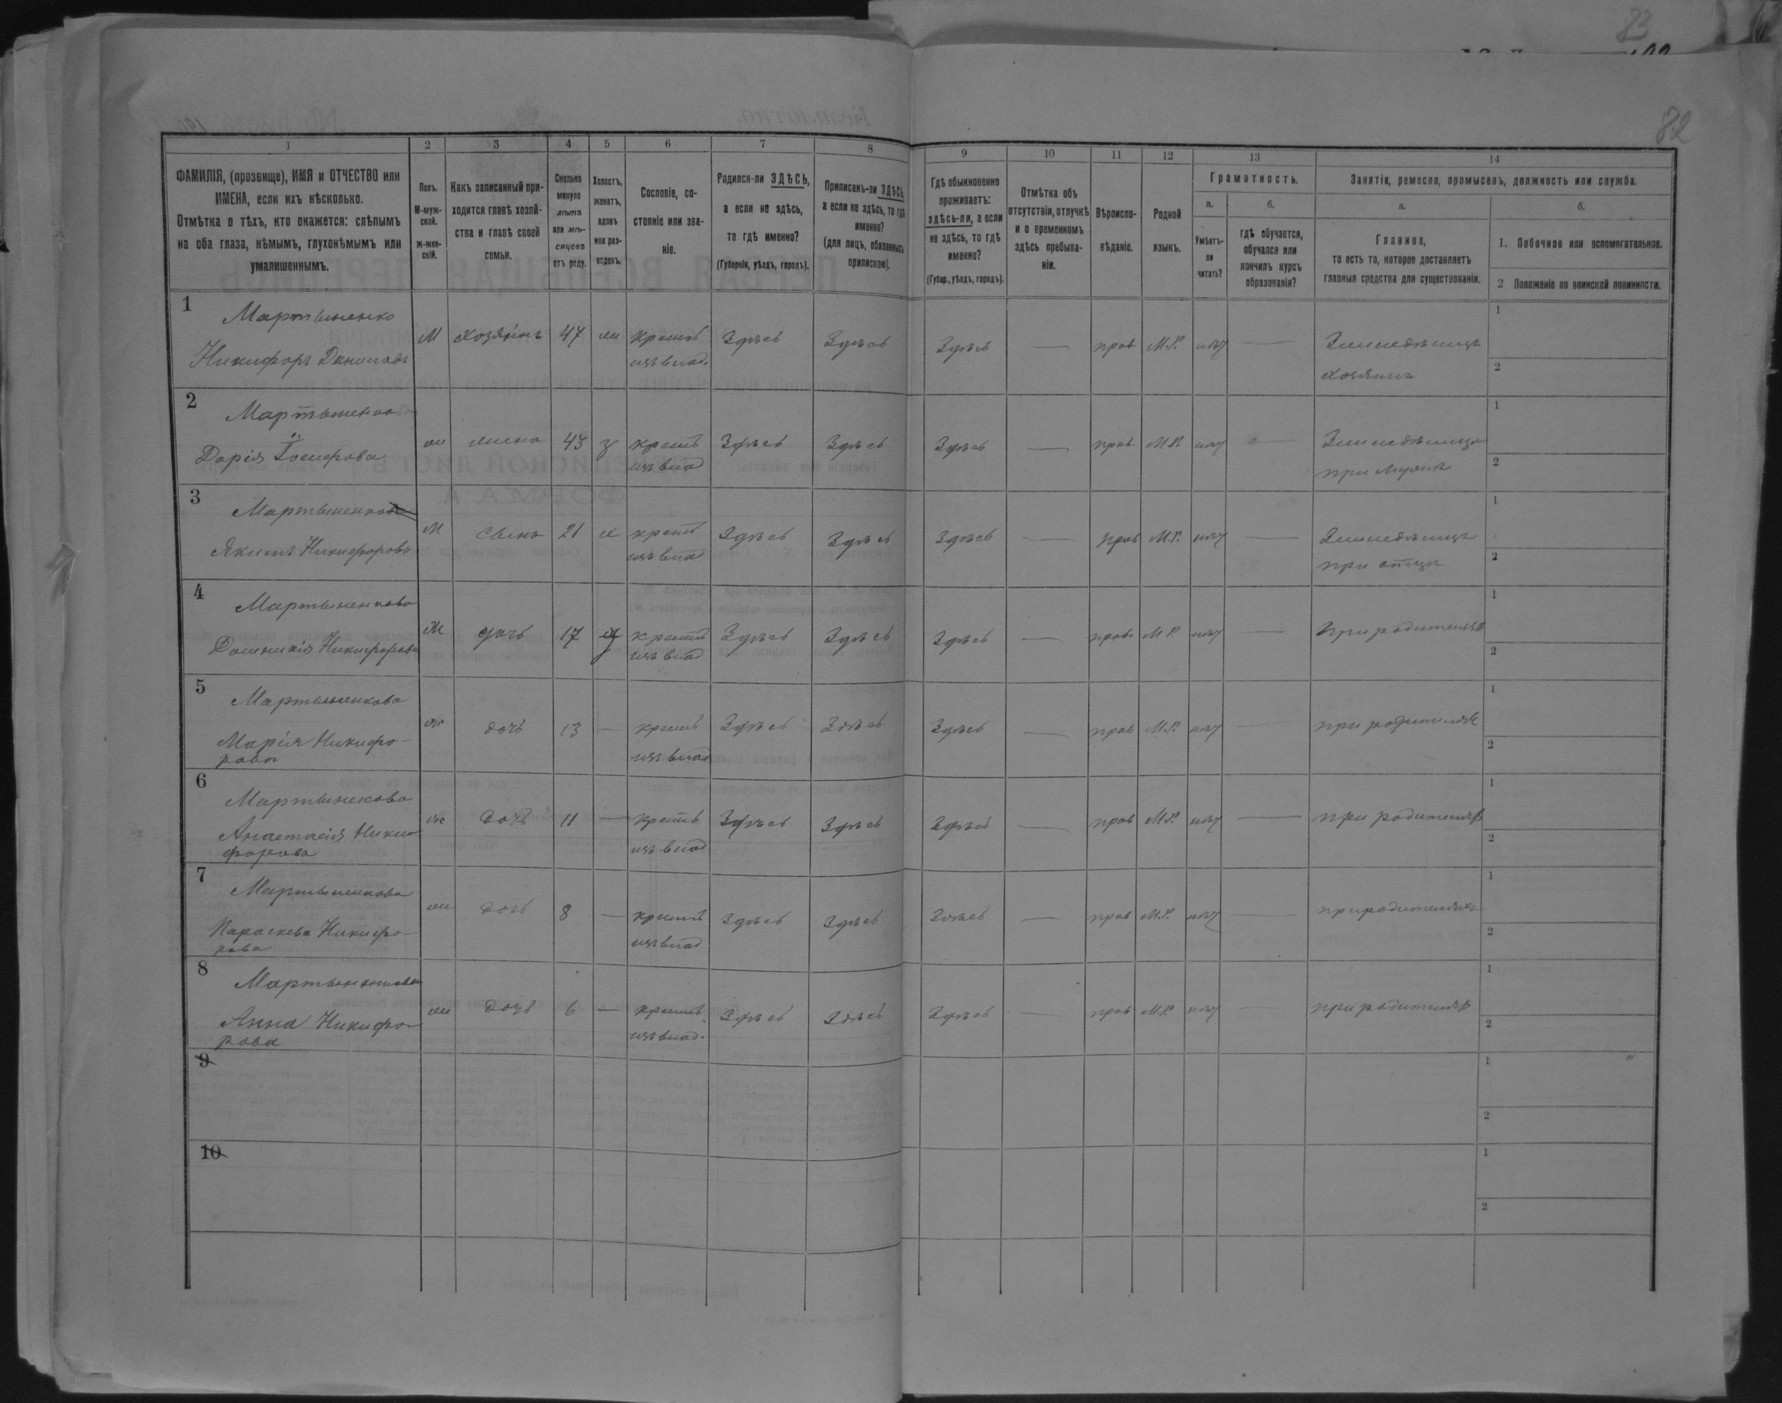 83
82
1
2
3
4
5
6
7
8
9
10
11
12
13
14
ФАМИЛІЯ, (прозвище), ИМЯ и ОТЧЕСТВО или
ИМЕНА, если ихъ нѣсколько.
Отмѣтка о тѣхъ, кто окажется: слѣпымъ
на оба глаза, нѣмымъ, глухонѣмымъ или
умалишеннымъ.
Полъ.
М-муж-
ской.
ж-жен-
скій.
Какъ записанный при-
ходится главѣ хозяй-
ства и главѣ своей
семьи.
Сколько
минуло
лѣтъ
или мѣ-
сяцевъ
отъ роду.
Холостъ,
женатъ,
вдовъ
или раз-
веденъ.
Сословіе, со-
стояніе или зва-
ніе.
Родился-ли ЗДѢСЬ,
а если не здѣсь,
то гдѣ именно?
(Губернія, уѣздъ, городъ).
Приписанъ-ли ЗДѢСЬ,
а если не здѣсь, то гдѣ
именно?
(для лицъ, обязанныхъ
припискою).
Гдѣ обыкновенно
проживаетъ:
здѣсь-ли, а если
не здѣсь, то гдѣ
именно?
(Губер., уѣздъ, городъ).
Отмѣтка объ
отсутствіи, отлучкѣ
и о временномъ
здѣсь пребыва-
ніи.
Вѣроиспо-
вѣданіе.
Родной
языкъ.
Грамотность.
а.
Умѣетъ-
ли
читать?
б.
гдѣ обучается,
обучался или
кончилъ курсъ
образованія?
Занятіе, ремесло, промыселъ, должность или служба.
а.
Главное,
то есть то, которое доставляетъ
главныя средства для существованія.
б.
1. Побочное или вспомогательное.
2 Положеніе по воинской повинности.
1
Мартыненко
Никифоръ М хозяинъ 47 крест Здѣсь Здѣсь Здѣсь — прав М.Р. нѣт — Земледѣлецъ
изъ влад. хозяинъ
1
2
2
Мартыненкова
Дарія Іосифова жена 43 з крест Здѣсь Здѣсь Здѣсь — прав М.Р. нѣт —
изъ влад при мужѣ
1
2
3
Мартыненко
Якимъ Никифоровъ М сынъ 21 крест Здѣсь Здѣсь Здѣсь — прав М.Р. нѣт — Земледѣлецъ
изъ влад при отцѣ
1
2
4
Мартыненкова
Домникія Никифорова дочь 17 крест Здѣсь Здѣсь Здѣсь — прав М.Р. нѣт — при родителяхъ
изъ влад
1
2
5
Мартыненкова
Марія Никифо- ж дочь 13 — крест Здѣсь Здѣсь Здѣсь — прав М.Р. нѣт — при родителях
рова изъ влад
1
2
6
Мартыненкова
Анастасія Ники- ж дочь 11 — крест Здѣсь Здѣсь Здѣсь — прав М.Р. нѣт — при родителях
форова изъ влад
1
2
7
Мартыненкова
Параскева Никифо- ж дочь 8 — крест Здѣсь Здѣсь Здѣсь — прав М.Р. нѣт — при родителях
рова изъ влад
1
2
8
Мартыненкова
Анна Никифо- ж дочь 6 — крест Здѣсь Здѣсь Здѣсь — прав М.Р. нѣт — при родителях
рова изъ влад.
1
2
9
1
2
10
1
2